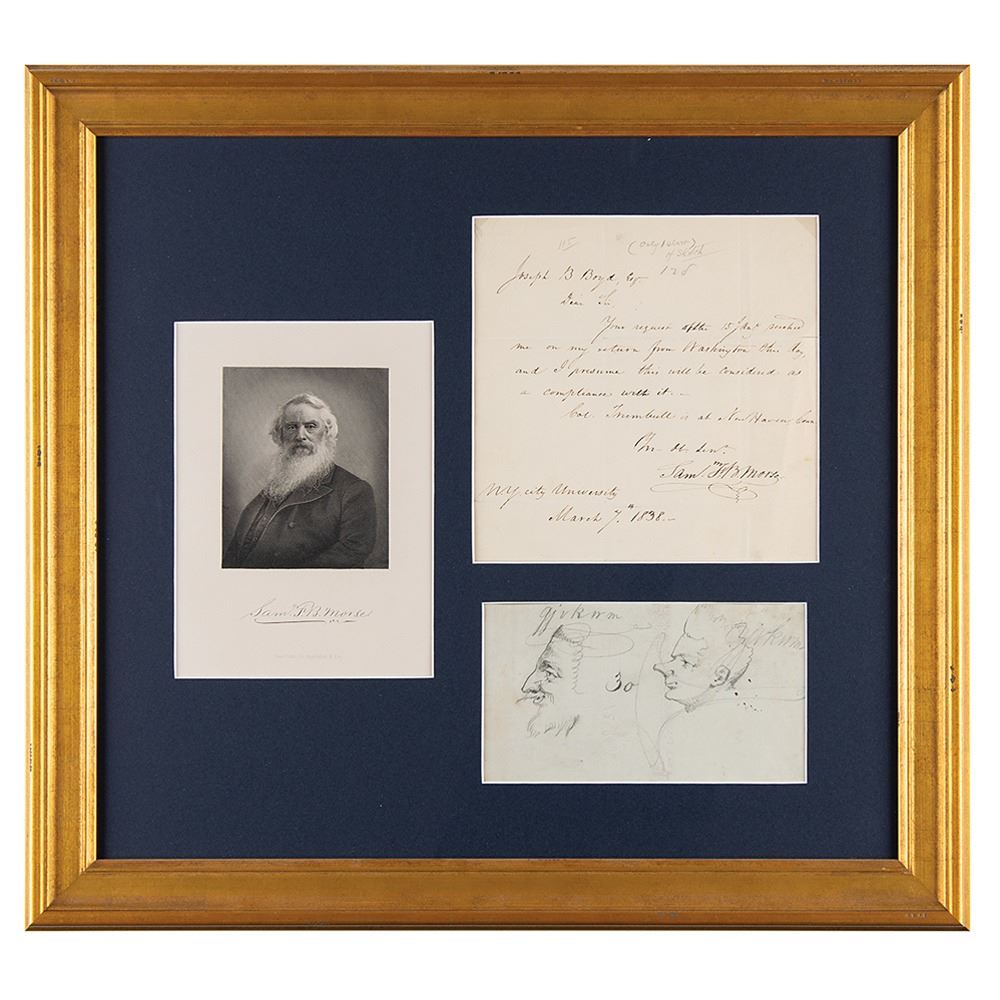 Sam.l F.B. Morse
115
(Only 1 show)
of Sketch
128
Joseph B Boyd, Esq
Dear Sir,
Your request of the 15 Jan.y reached
me on my return from Washington this day,
and I presume this will be considered as
a compliance with it.
Col. Trumbull is at New Haven Conn
Yr. Ob. Serv.t
Sam.l F.B. Morse
N.Y. city University
March 7.th 1838.
gjvkwm
30
gjvkwm